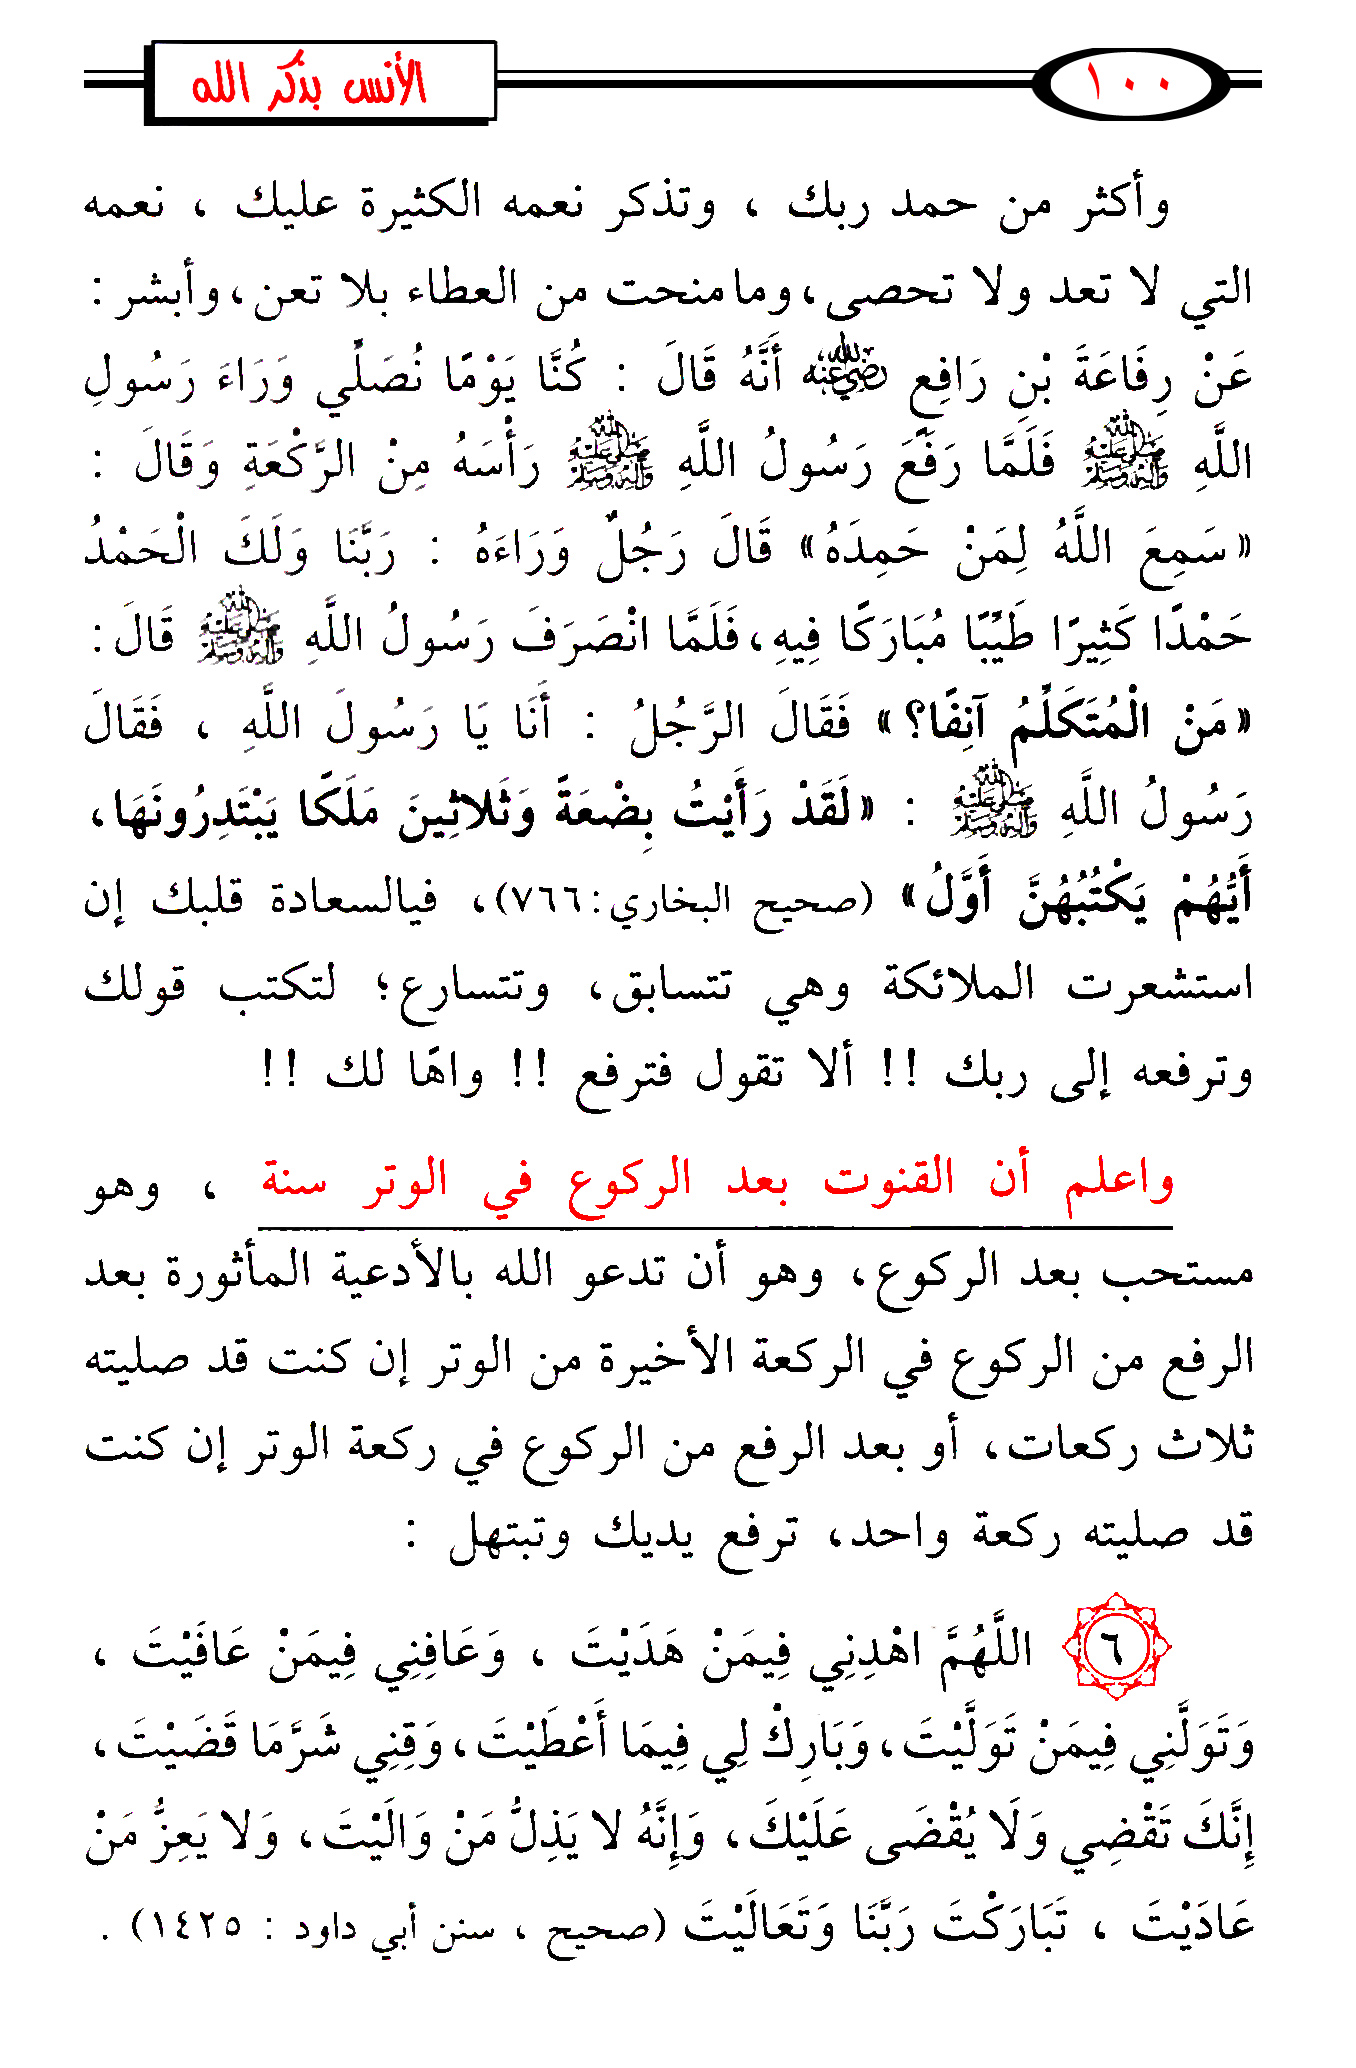 ١٠٠
الأنس بذكر الله
وأكثر من حمد ربك ، وتذكر نعمه الكثيرة عليك ، نعمه
التي لا تعد ولا تحصى، وما منحت من العطاء بلا تعن، وأبشر :
عَنْ رِفَاعَةَ بْنِ رَافِعٍ رضي الله عنه أَنَّهُ قَالَ : كُنَّا يَوْمًا نُصَلِّي وَرَاءَ رَسُولِ
اللَّهِ ﷺ فَلَمَّا رَفَعَ رَسُولُ اللَّهِ ﷺ رَأْسَهُ مِنْ الرَّكْعَةِ وَقَالَ :
«سَمِعَ اللَّهُ لِمَنْ حَمِدَهُ» قَالَ رَجُلٌ وَرَاءَهُ : رَبَّنَا وَلَكَ الْحَمْدُ
حَمْدًا كَثِيرًا طَيِّبًا مُبَارَكًا فِيهِ، فَلَمَّا انْصَرَفَ رَسُولُ اللَّهِ ﷺ قَالَ :
«مَنْ الْمُتَكَلِّمُ آنِفًا؟» فَقَالَ الرَّجُلُ : أَنَا يَا رَسُولَ اللَّهِ ، فَقَالَ
رَسُولُ اللَّهِ ﷺ : «لَقَدْ رَأَيْتُ بِضْعَةً وَثَلاثِينَ مَلَكًا يَبْتَدِرُونَهَا،
أَيُّهُمْ يَكْتُبُهُنَّ أَوَّلُ» (صحيح البخاري: ٧٦٦)، فيالسعادة قلبك إن
استشعرت الملائكة وهي تتسابق، وتتسارع؛ لتكتب قولك
وترفعه إلى ربك !! ألا تقول فترفع !! واهًا لك !!
واعلم أن القنوت بعد الركوع في الوتر سنة ، وهو
مستحب بعد الركوع، وهو أن تدعو الله بالأدعية المأثورة بعد
الرفع من الركوع في الركعة الأخيرة من الوتر إن كنت قد صليته
ثلاث ركعات، أو بعد الرفع من الركوع في ركعة الوتر إن كنت
قد صليته ركعة واحد، ترفع يديك وتبتهل :
٦ اللَّهُمَّ اهْدِنِي فِيمَنْ هَدَيْتَ ، وَعَافِنِي فِيمَنْ عَافَيْتَ ،
وَتَوَلَّنِي فِيمَنْ تَوَلَّيْتَ، وَبَارِكْ لِي فِيمَا أَعْطَيْتَ، وَقِنِي شَرَّمَا قَضَيْتَ،
إِنَّكَ تَقْضِي وَلَا يُقْضَى عَلَيْكَ، وَإِنَّهُ لا يَذِلُّ مَنْ وَالَيْتَ، وَلا يَعِزُّ مَنْ
عَادَيْتَ ، تَبَارَكْتَ رَبَّنَا وَتَعَالَيْتَ (صحيح ، سنن أبي داود : ١٤٢٥) .